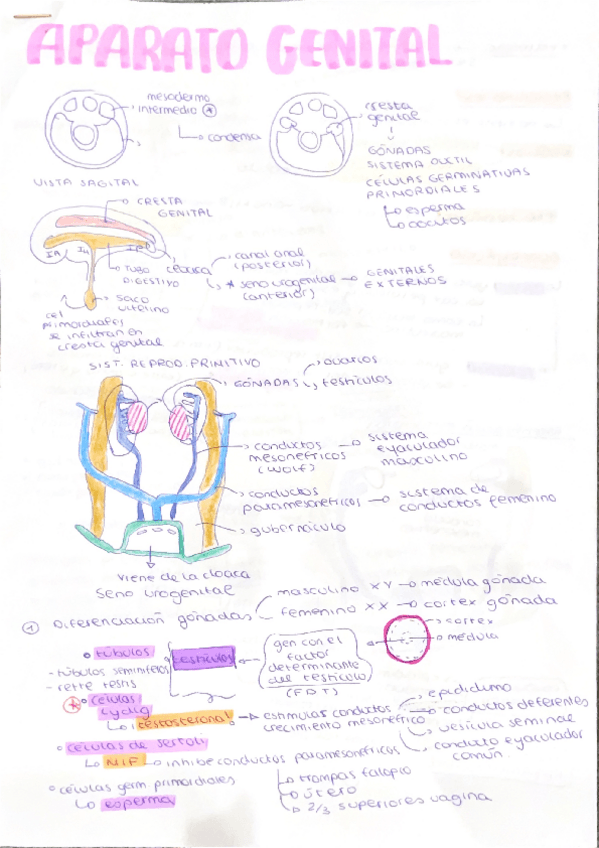 APARATO GENITAL
mesodermo
intermedio
condensa
cresta
genital
GÓNADAS
SISTEMA DUCTIL
CÉLULAS GERMINATIVAS
PRIMORDIALES
esperma
oócitos
VISTA SAGITAL
CRESTA
GENITAL
TUBO
DIGESTIVO
cloaca
canal anal
(posterior)
* seno urogenital
(anterior)
GENITALES
EXTERNOS
saco
vitelino
cel
primordiales
se infiltran en
cresta genital
SIST. REPROD. PRIMITIVO
GÓNADAS
ovarios
testículos
conductos
mesonéfricos
(WOLF)
sistema
eyaculador
masculino
conductos
paramesonéfricos
sistema de
conductos femenino
gubernáculo
viene de la cloaca
seno urogenital
1 Diferenciación gónadas
masculino XY médula gónada
femenino XX cortex gónada
cortex
médula
túbulos
- túbulos seminíferos
- rette testis
testículos
gen con el
factor
determinante
del testículo
(FDT)
células
Lydig
testosterona
estimulas conductos
crecimiento mesonéfrico
epidídimo
conductos deferentes
vesícula seminal
conducto eyaculador
común
células de sertoli
MIF inhibe conductos paramesonéfricos
trompas falopio
útero
2/3 superiores vagina
células germ. primordiales
esperma